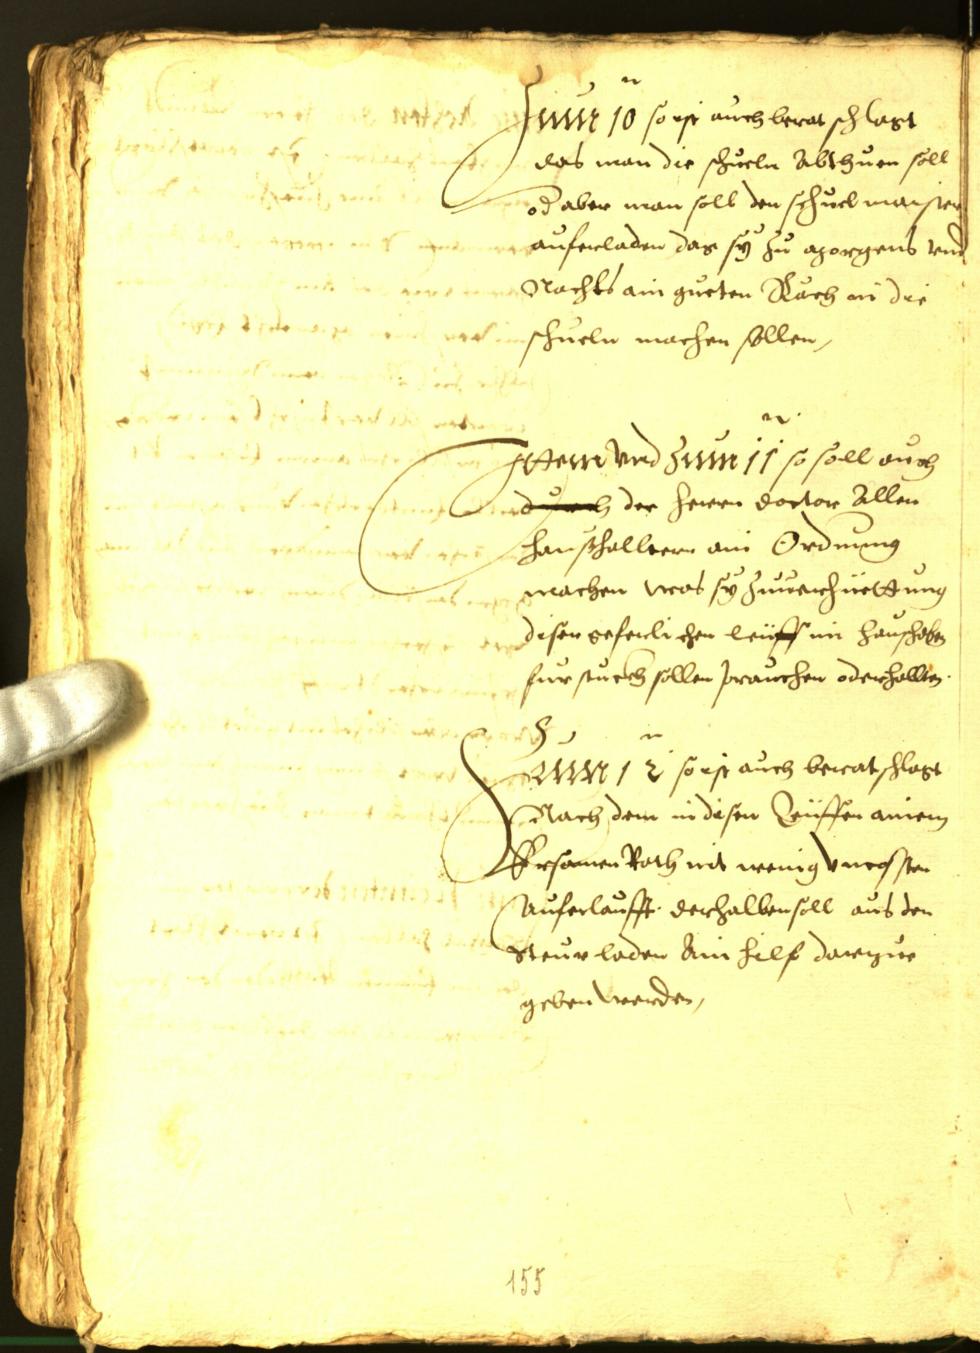 Zum 10n so ist auch beratschlagt
das man die schueln Abthuen soll
od aber man soll den schuelmaister
auferladen das sy zu morgens vnd
Nachts ain gueten Rauch in die
schueln machen sollen,
Ittem vnd Zum 11n so soll auch
durch der herrn doctor Allen
haushalltern ain Ordnung
machen was sy zuuerhüettung
diser geferlichen leüff im haushaben
fur stuckh sollen prauchen oder hallten.
Zum 12n so ist auch beratschlagt
Nach dem in disen Leüffen ainem
Ersamen Rath nit wenig vncossten
Auferlaufft. derhalben soll aus den
Steur laden Ain hilf darzue
geben werden,
155